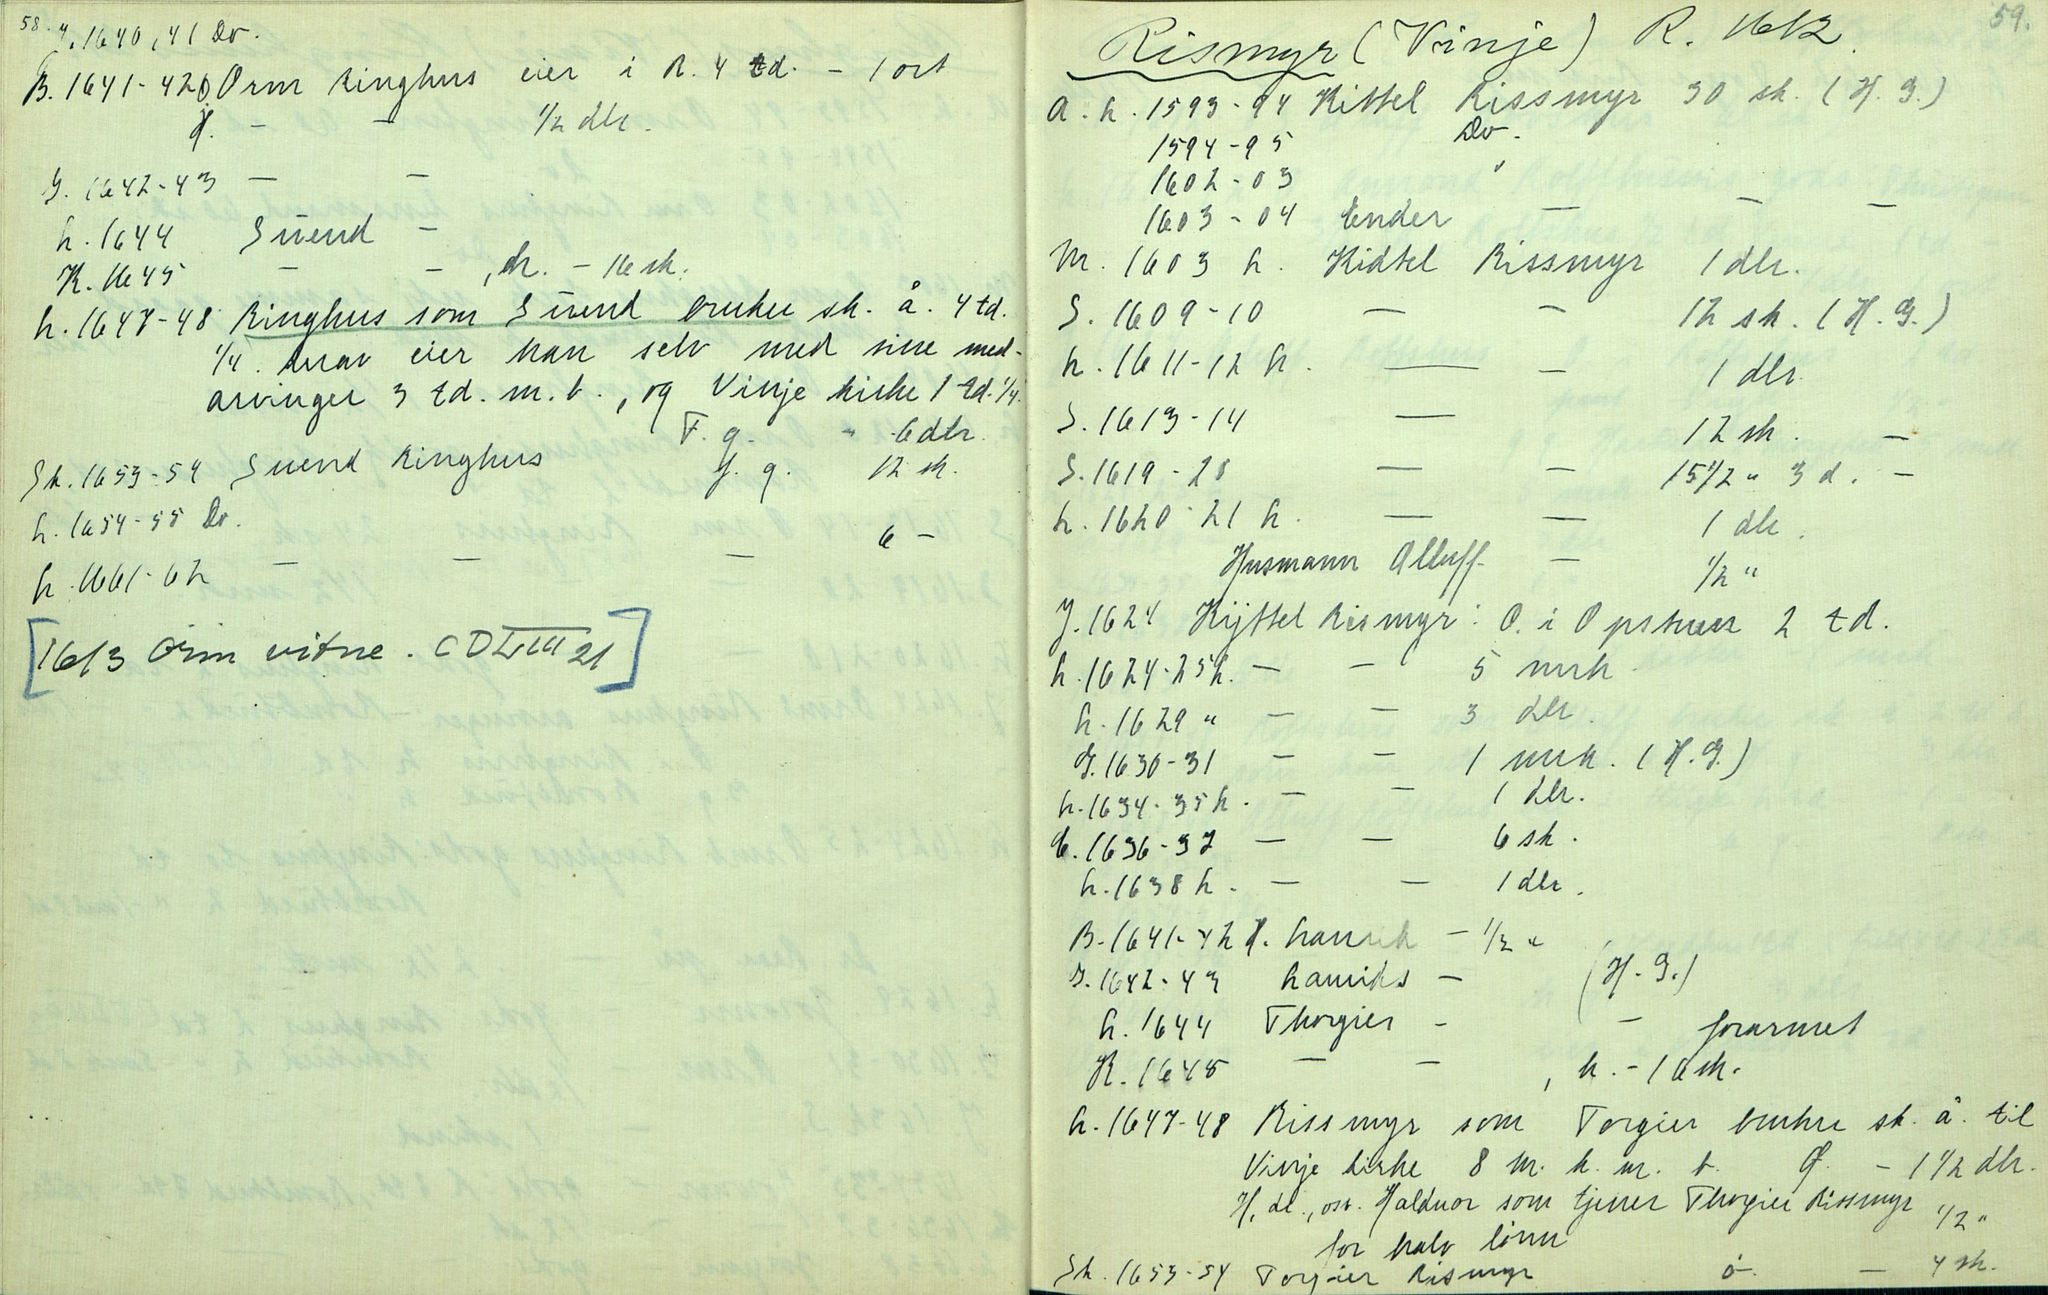 58.
4. 1640, 41 Do.
B. 1641-42 Orm Ringhus eier i R. 4 td. - 1 ort
- - 1/2 dlr.
G. 1642-43 - -
h. 1644 Suend -
K. 1645 - -, h. - 16 sk.
h. 1647-48 Ringhus som Suend bruker sk. å. 4 td.
1/4. hvav eier han selv med sine med-
arvinger 3 td. m. b., og Vinje kirke 1 td. 1/4.
F. g. - 6 dlr.
Sk. 1653-54 Suend Ringhus f. g. 12 sk.
h. 1654-55 Do.
h. 1661-62 - - - 6 -
[1613 Orm vitne. CD LIII 21]
59.
Rismyr (Vinje) R. 1612.
A. h. 1593-94 Kittel Rissmyr 30 sk. (H. G.)
1594-95 Do.
1602-03 "
1603-04 Ender - - -
M. 1603 h. Kidtel Rissmyr 1 dlr.
S. 1609-10 - - 12 sk. (H. G.)
h. 1611-12 h. - - 1 dlr.
S. 1613-14 - 12 sk. -
S. 1619-20 - - 15 1/2 " 3 d. -
h. 1620-21 h. - - 1 dlr.
Husmann Alluff - 1/2 "
J. 1624 Kijttel Rismyr: O. i Opstuen 2 td.
h. 1624-25 h. - - 5 mrk.
h. 1629 " - - 3 dlr.
G. 1630-31 - - 1 mrk. (H. G.)
h. 1634-35 h. - - 1 dlr.
C. 1636-37 - - 6 sk.
h. 1638 h. - - 1 dlr.
B. 1641-42 Ø. hanrik - 1/2 "
G. 1642-43 hanriks - (H. G.)
h. 1644 Thorgier - - forarmet
K. 1645 - -, h. - 16 sk.
h. 1647-48 Rissmyr som Torgier bruker sk. å. til
Vinje kirke 8 m. k. m. b. Ø. - 1 1/2 dlr.
H, dr., osv. Halduor som tjener Thorgier Rissmyr 1/2 "
for halv lønn
Sk. 1653-54 Torgier Rismyr ø. - 4 sk.